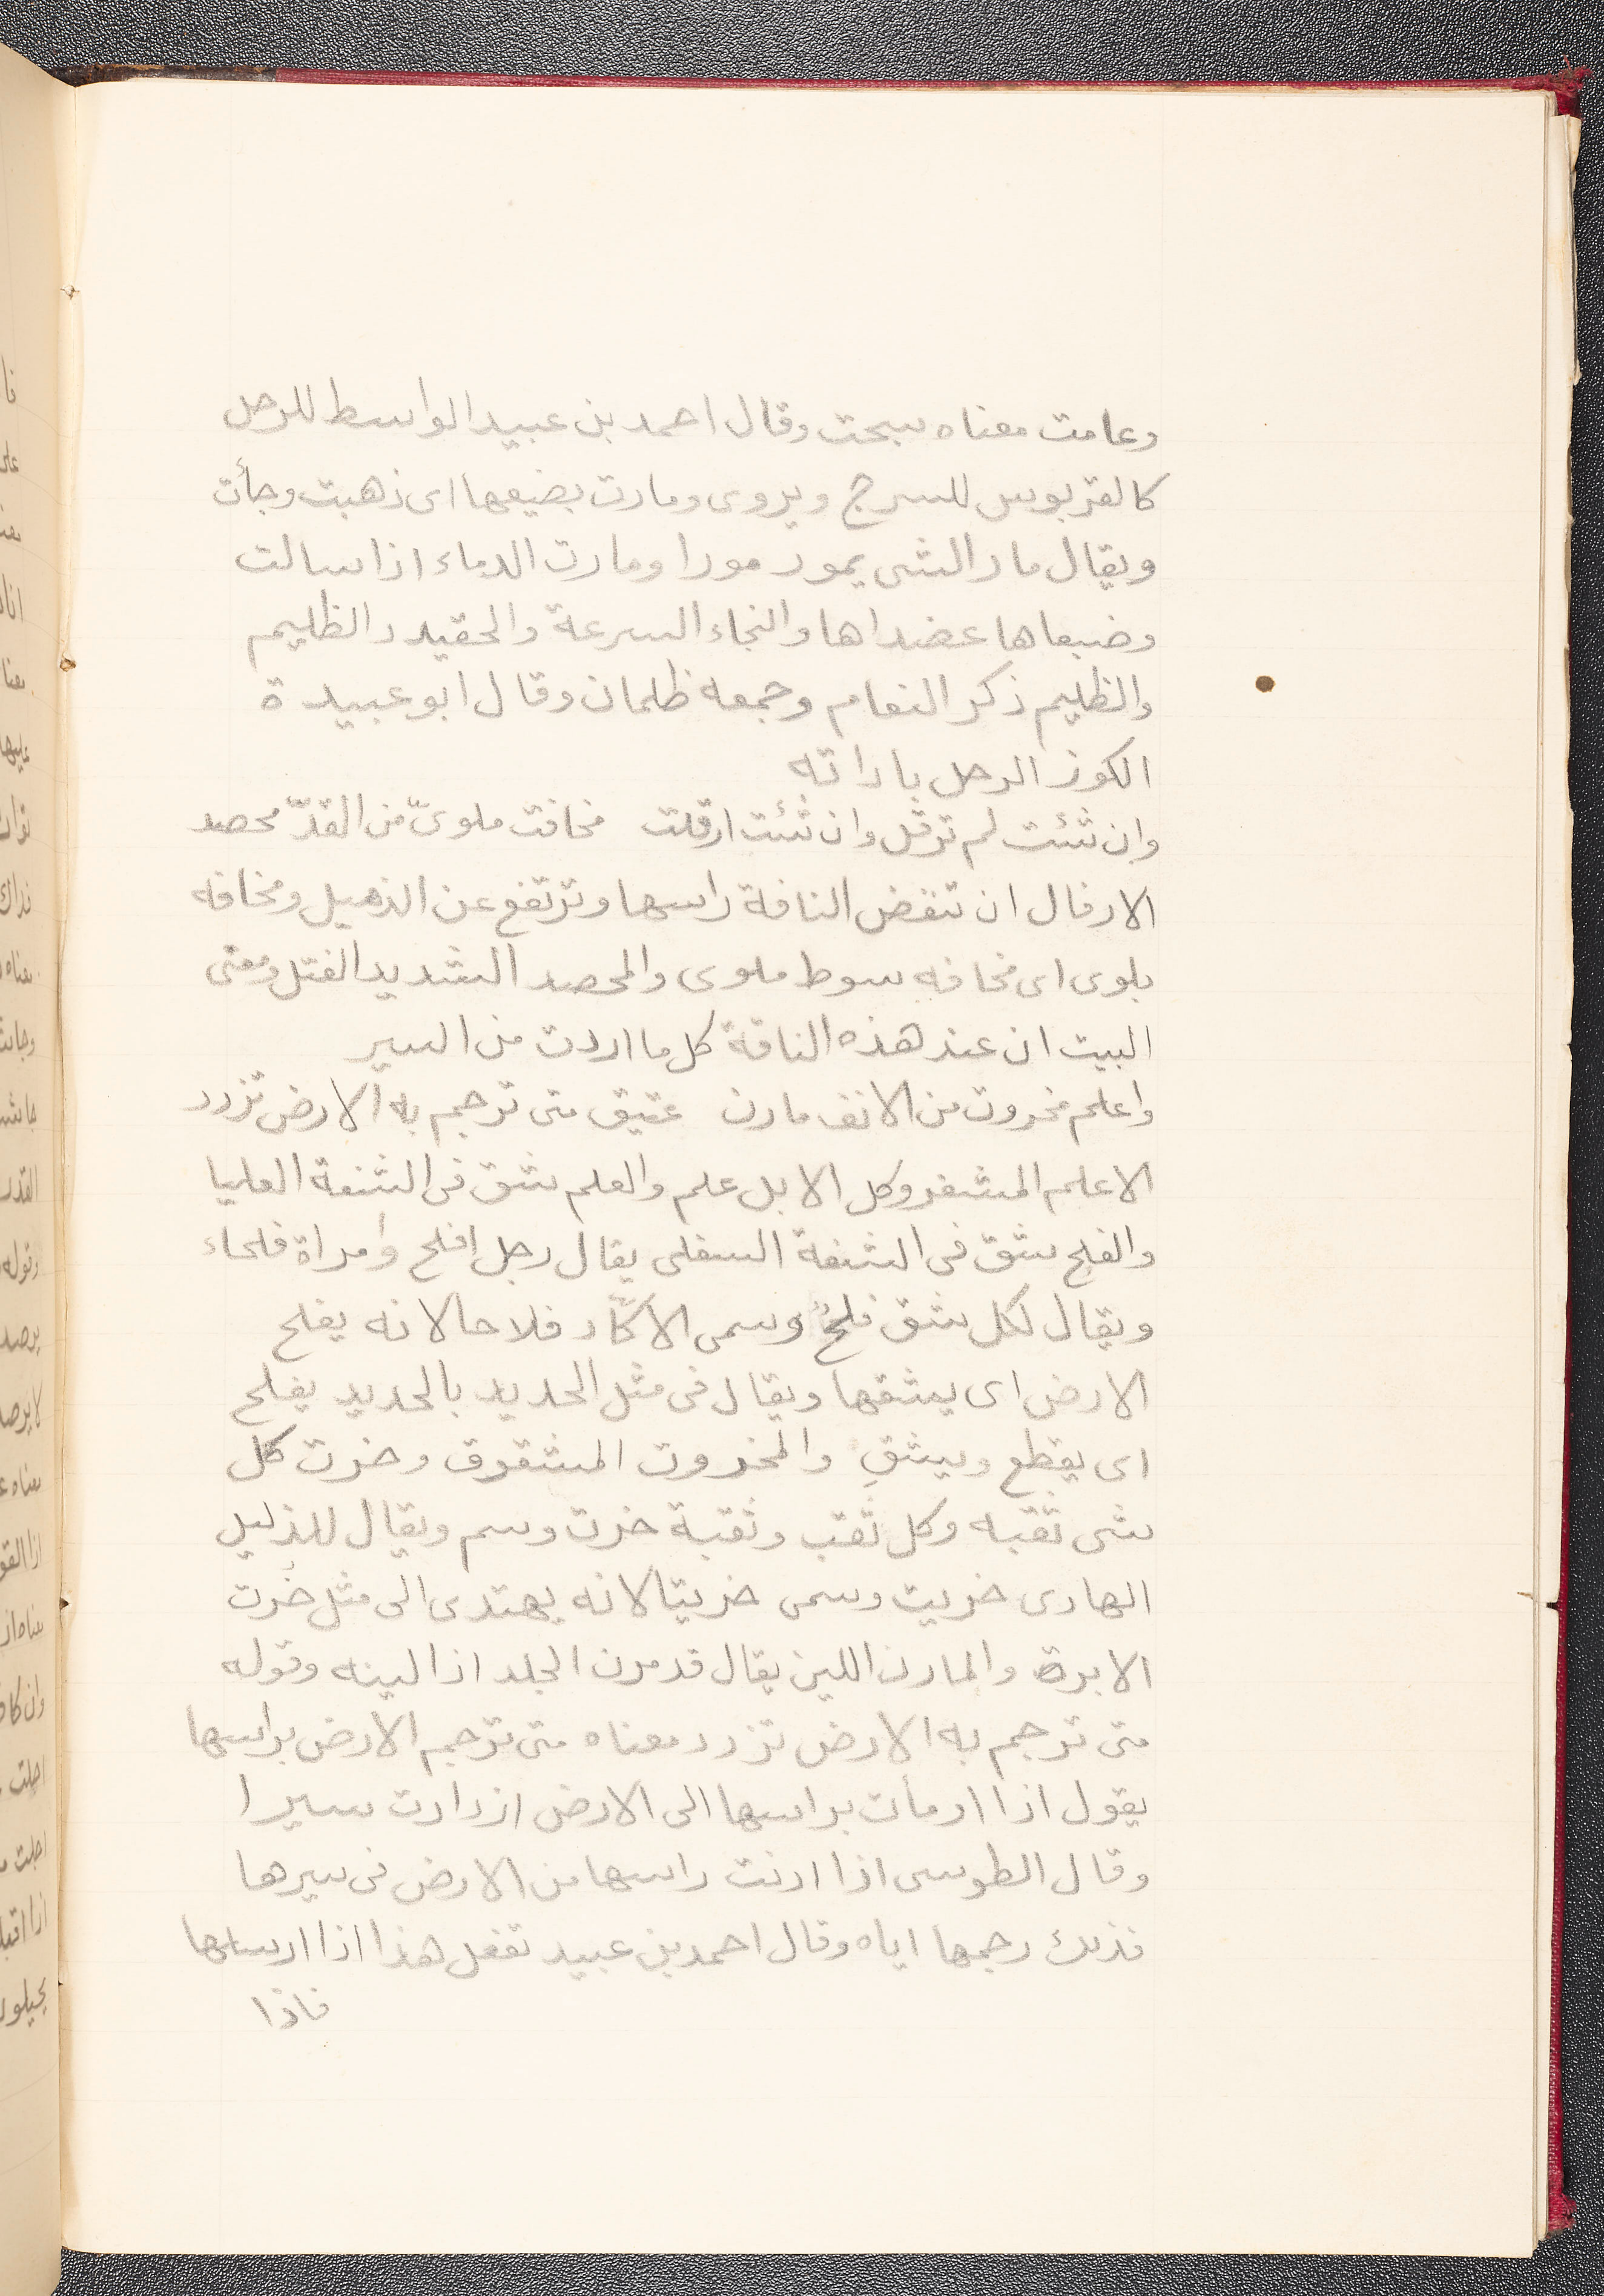 وعامت معناه سبحت وقال احمد بن عبيد الواسط للرحل
كالقربوس للسرج ويروى ومارت بضيعها اى ذهبت وجأت
ويقال مار الشى يمور مورا ومارت الدماء اذا سالت
وضبعاها عضداها والنجاء السرعة والحفيدد الظليم
والظليم ذكر النعام وجمعه ظلمان وقال ابو عبيدة
الكور الرحل باداته
وان شئت لم ترقل وان شئت ارقلت مخافت ملوىّ من القدّ محصد
الارقال ان تنفض الناقة راسها وترتفع عن الذميل ومخافه
بلوى اى مخافه سوط ملوى والمحصد الشديد الفتل ومعنى
البيت ان عند هذه الناقة كل ما اردت من السير
واعلم مخروت من الانف مارن عتيق متى ترجم به الارض تزدد
الاعلم المشفر وكل الابل علم والعلم شق فى الشفة العليا
والفلح شق فى الشفة السفلى يقال رجل افلح وامراة فلحاء
ويقال لكل شق فلحٌ وسمى الاكّار فلاحا لانه يفلح
الارض اى يشقها ويقال فى مثل الحديد بالحديد يفلح
اى يقطع ويشق والمخروت المشقوق وخرت كل
شى ثقبه وكل ثقب وثقبة خرت وسم ويقال للدليل
الهادى خريت وسمى خريتا لانه يهتدى الى مثل خُرت
الابرة والمارن اللين يقال قد مرن الجلد اذا لينه وقوله
متى ترجم به الارض تزدد معناه متى ترجم الارض براسها
يقول اذا اومأت براسها الى الارض ازدادت سيرا
وقال الطوسى اذا ادنت راسها من الارض فى سيرها
فذلك رجمها اياه وقال احمد بن عبيد تفعل هذا اذا ارسلها
فاذا